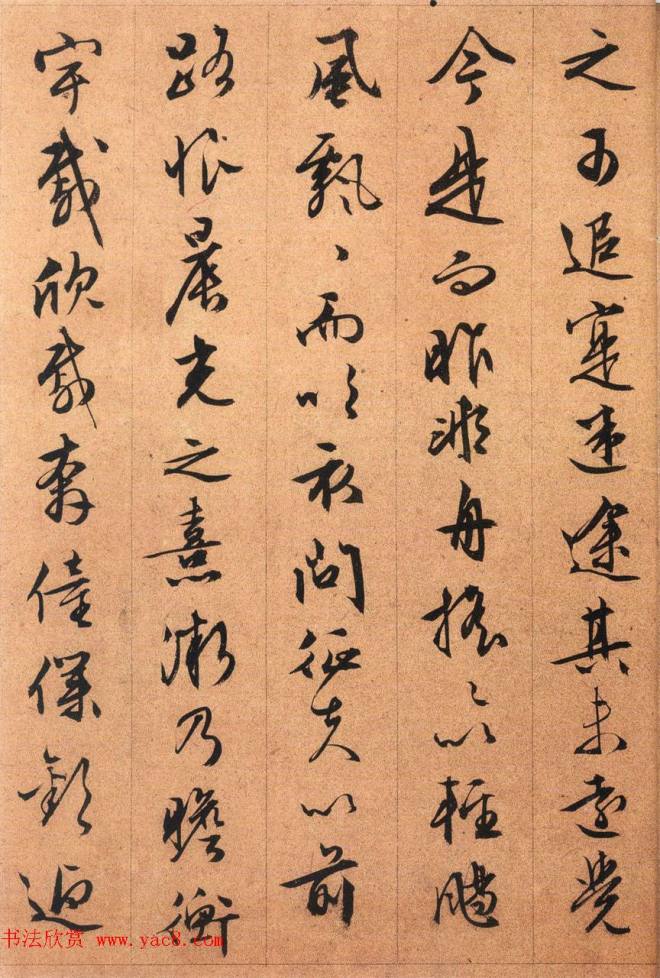 之可追寔迷途其未遠覺
今是而昨非舟搖〻以輕颺
風飄〻而吹衣問征夫以前
路恨晨光之熹微乃瞻衡
宇載欣載奔僮僕歡迎
书法欣赏 www.yac8.com